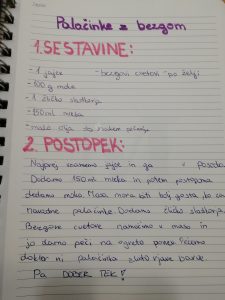 Palačinke z bezgom
1. SESTAVINE:
- 1 jajce - bezgovi cvetovi po želji
- 100 g moke
- 1 žličko sladkorja
- 150 ml mleka
- malo olja za
2. POSTOPEK:
Najprej vzamemo jajce in ga v posodo
Dodamo 150 ml mleka in potem postopoma
dodamo moko. Masa mora biti bolj gosta kot za
navadne palačinke. Dodamo žličko sladkorja.
Bezgove cvetove namočimo v maso in
jo damo peči na ogreto ponev. Pečemo
dokler ni palačinka zlato rjave barve.
Pa DOBER TEK!